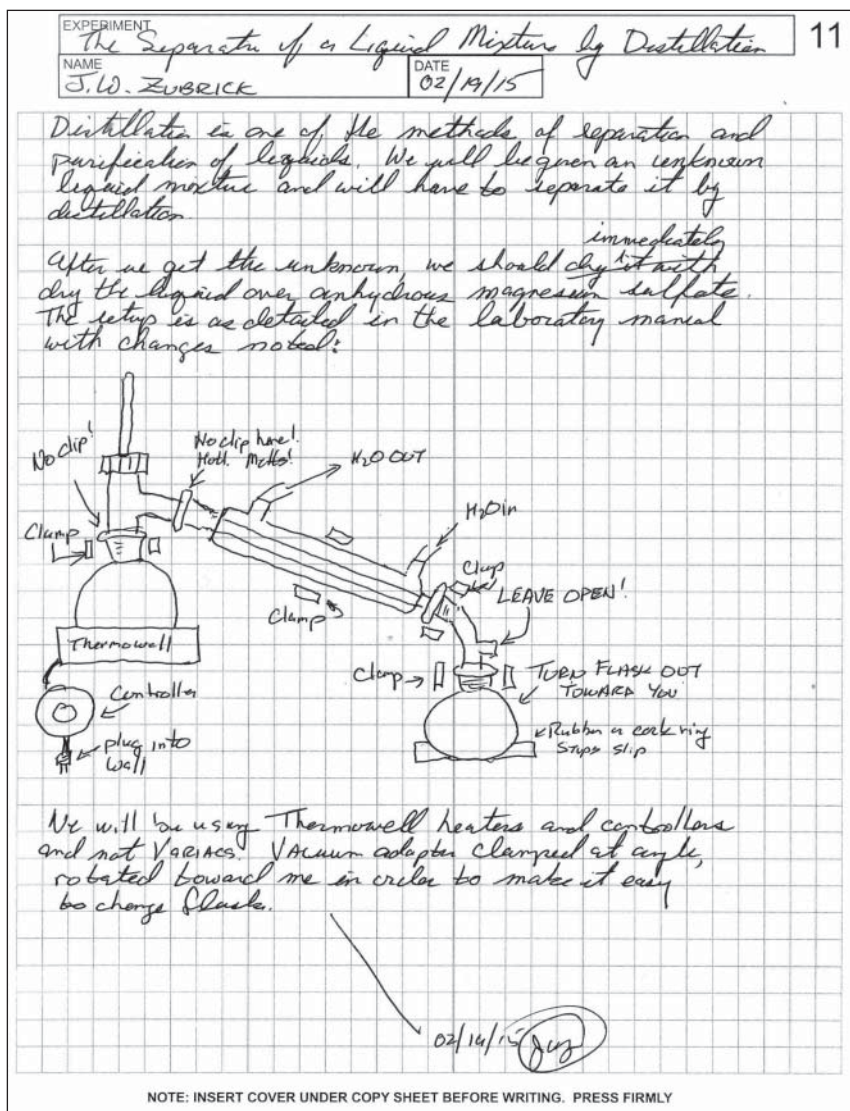 EXPERIMENT The Separatn of a Liquid Mixture by Distillation
11
NAME J.W. ZUBRICK
DATE 02/19/15
Distillation is one of the methods of separation and
purification of liquids. We will be given an unknown
liquid mixture and will have to separate it by
distillation
immediately
After we get the unknown, we should dry it with
dry the liquid over anhydrous magnesium sulfate.
The setup is as detailed in the laboratory manual
with changes noted:
No clip!
No clip here!
Hot! Melts!
H2O OUT
H2O in
Clamp
Clamp
LEAVE OPEN!
Clamp
Thermowell
Clamp
TURN FLASK OUT
TOWARD YOU
Controller
Rubber or cork ring
Stops slip
plug into
wall
We will be using Thermowell heaters and controllers
and not VARIACS. VACuum adapter clamped at angle,
rotated toward me in order to make it easy
to change flask.
02/19/15 jwz
NOTE: INSERT COVER UNDER COPY SHEET BEFORE WRITING. PRESS FIRMLY